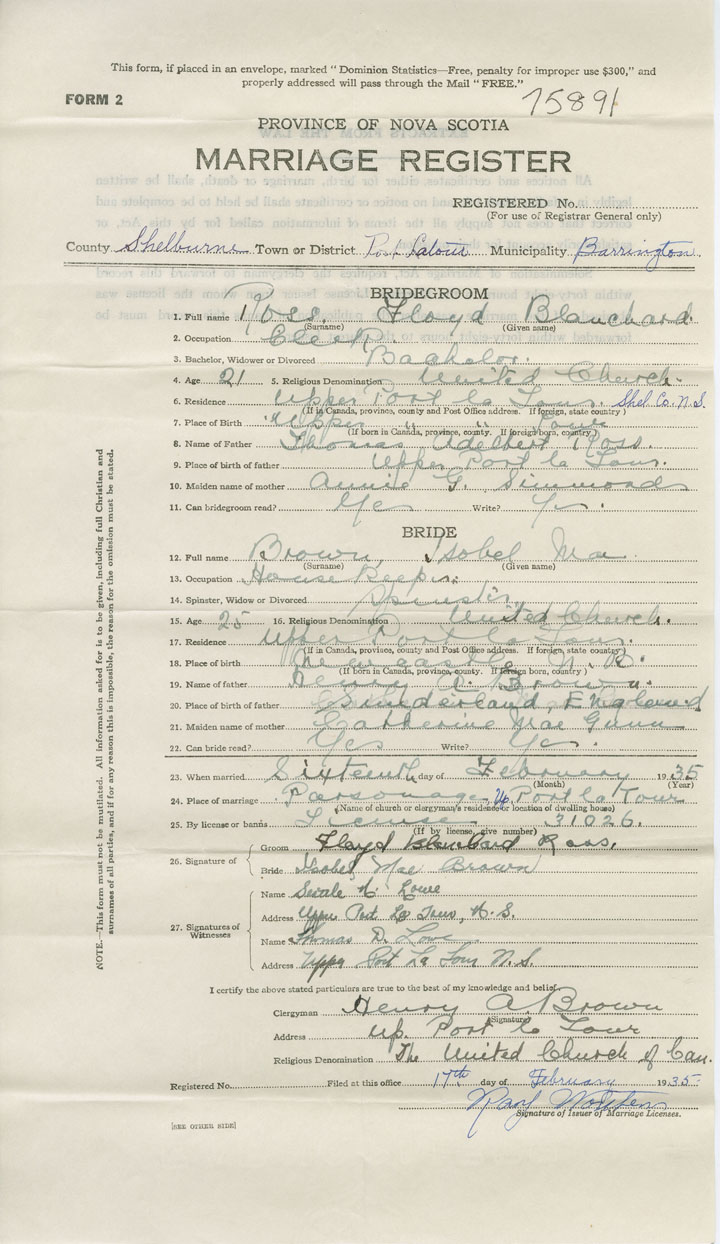 This form, if placed in an envelope, marked "Dominion Statistics—Free, penalty for improper use $300," and
properly addressed will pass through the Mail "FREE."
FORM 2
75891
PROVINCE OF NOVA SCOTIA
MARRIAGE REGISTER
REGISTERED No.
(For use of Registrar General only)
County Shelburne Town or District Port Latour Municipality Barrington
BRIDEGROOM
1. Full name Ross, Floyd Blanchard
(Surname) (Given name)
2. Occupation Clerk
3. Bachelor, Widower or Divorced Bachelor.
4. Age 21 5. Religious Denomination United Church.
6. Residence Upper Port la Tour. Shel. Co. N.S.
(If in Canada, province, county and Post Office address. If foreign, state country)
7. Place of Birth Upper " " Tour
(If born in Canada, province, county. If foreign born, country)
8. Name of Father Thomas Adelbert Ross.
9. Place of birth of father Upper Port la Tour.
10. Maiden name of mother Annie G. Simmonds
11. Can bridegroom read? Yes Write? Yes.
BRIDE
12. Full name Brown, Isobel Mae
(Surname) (Given name)
13. Occupation House Keeper.
14. Spinster, Widow or Divorced Spinster.
15. Age 25 16. Religious Denomination United Church.
17. Residence Upper Port la Tour.
(If in Canada, province, county and Post Office address. If foreign, state country)
18. Place of birth Newcastle N.B.
(If born in Canada, province, county. If foreign born, country)
19. Name of father Henry A. Brown.
20. Place of birth of father Sunderland, England
21. Maiden name of mother Catherine Mae Gunn
22. Can bride read? Yes Write? Yes.
23. When married Sixteenth day of February 1935
(Month) (Year)
24. Place of marriage Parsonage, Up. Port la Tour
(Name of church or clergyman's residence or location of dwelling house)
25. By license or banns License 31026.
(If by license, give number)
26. Signature of
Groom Floyd Blanchard Ross.
Bride Isobel Mae Brown
27. Signatures of Witnesses
Name N. Lowe
Address Upper Port La Tour, N.S.
Name Thomas D. Lowe
Address Upper Port La Tour N.S.
I certify the above stated particulars are true to the best of my knowledge and belief.
Clergyman Henry A. Brown
(Signature)
Address Up. Port la Tour
Religious Denomination The United Church of Can.
Registered No. Filed at this office 17th day of February 1935
Signature of Issuer of Marriage Licenses.
[SEE OTHER SIDE]
NOTE.—This form must not be mutilated. All information asked for is to be given, including full Christian and
surnames of all parties, and if for any reason this is impossible, the reason for the omission must be stated.